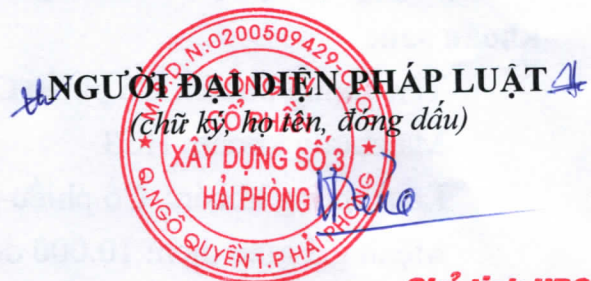 NGƯỜI ĐẠI DIỆN PHÁP LUẬT
(chữ ký, họ tên, đóng dấu)
M.S.D.N:0200509429-C.T.C.P
CÔNG TY
CỔ PHẦN
XÂY DỰNG SỐ 3
HẢI PHÒNG
Q.NGÔ QUYỀN T.P HẢI PHÒNG